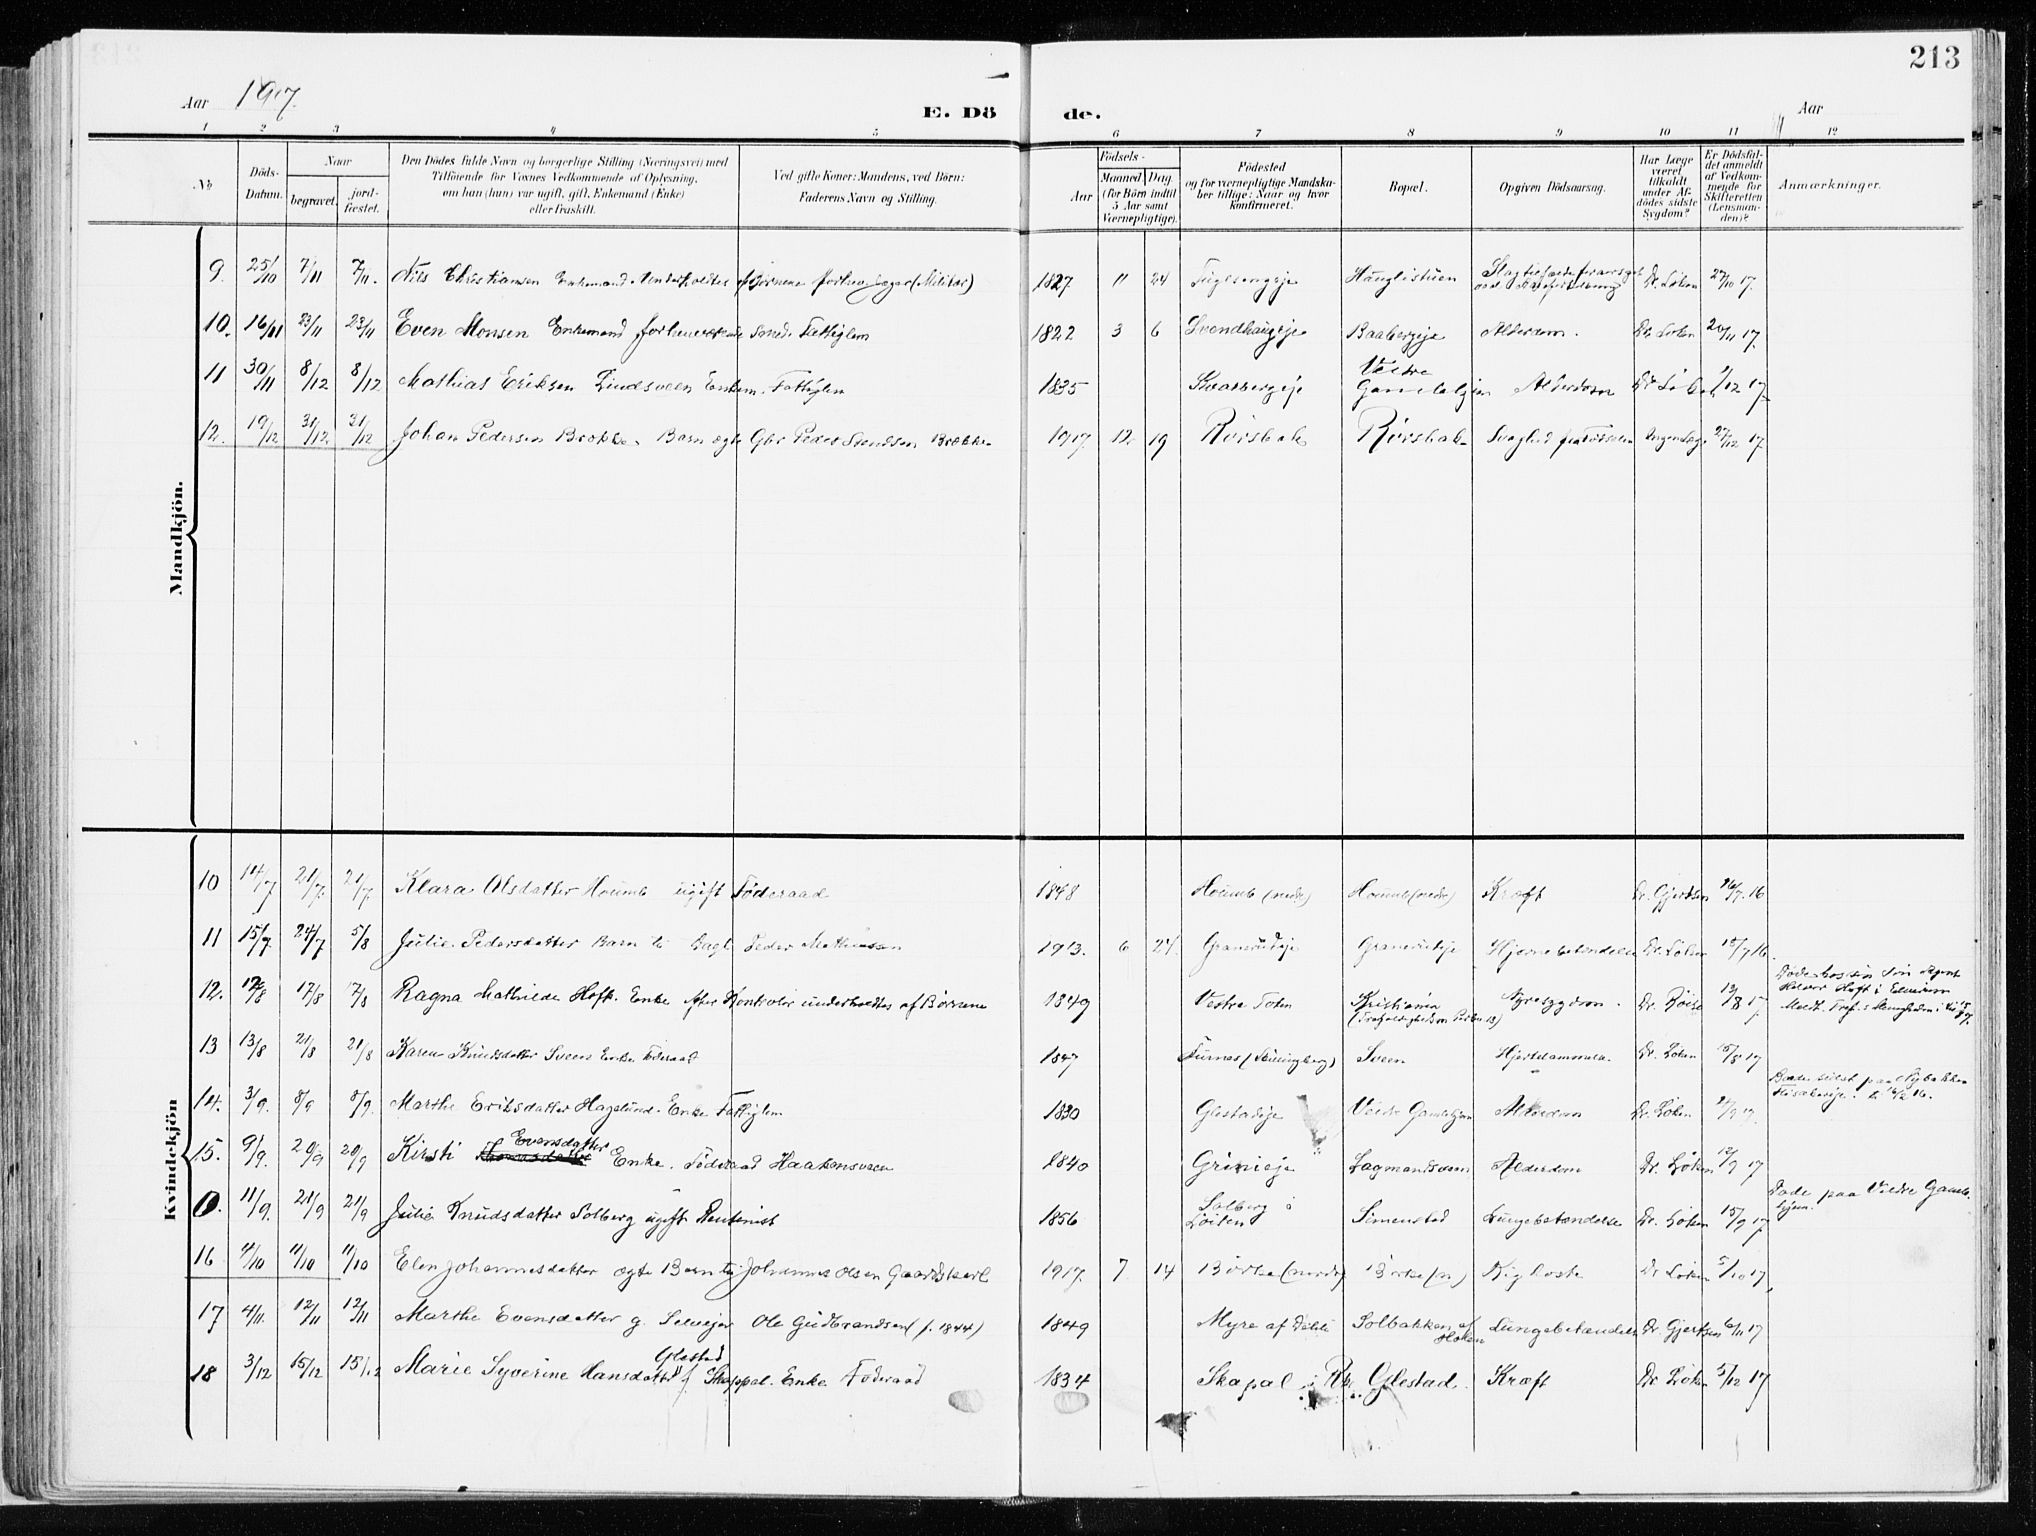 213
Aar 1917.
E. Dö de.
Aar
1 2 3 4 5 6 7 8 9 10 11 12
No
Döds-Datum.
Naar
begravet.
jord-fæstet.
Den Dödes fulde Navn og borgerlige Stilling (Næringsvei) med Tilföiende for Voxnes Vedkommende af Oplysning, om han (hun) var ugift, gift, Enkemand (Enke) eller fraskilt.
Ved gifte Koner: Mandens, ved Börn: Faderens Navn og Stilling.
Födsels-
Aar
Maaned Dag.
(for Börn indtil 5 Aar samt Værnepligtige).
Födested og for værnepligtige Mandskaber tillige: Naar og hvor konfirmeret.
Bopæl.
Opgiven Dödsaarsag.
Har Læge været tilkaldt under Afdödes sidste Sygdom?
Er Dödsfaldet anmeldt af Vedkommende for Skifteretten (Lensmanden)?
Anmærkninger.
Mandkjön.
9. 25/10 7/11 7/11. Nils Christiansen Enkemand. Underholdtes af Börnene forhv. Jæger (Militær) 1827 11 24 Fuglsengeje Hauglistuen Dr. Løken 27/10 17.
10. 16/11 23/11 23/11 Even Monsen Enkemand forhenværende Smed. Fattiglem 1822 3 6 Svendhaugeje Baabergeje Alderdom. Dr. Løken 20/11 17.
11 30/11 8/12 8/12 Mathias Eriksen Lindsveen Enkem. Fattiglem 1835 Kvarbergeje Veldre Gamlehjem Alderdom Dr. Løken 1/12 17
12. 19/12 31/12 31/12 Johan Pedersen Brække. Barn ægte Gbr Peder Svendsen Brække 1917. 12 19 Rørsbak Rørsbak Svaghed fra Fødselen Ingen Læge 27/12 17
Kvindekjön
10 14/7 21/7. 21/7. Klara Olsdatter Houmb ugift Föderaad 1848 Houmb (nedre) Houmb (nedre) Kræft Dr. Gjertsen 16/7.16
11 15/7. 24/7 5/8 Julie Pedersdatter Barn til Peder Mathiasen 1913. 6 24 Granerudeje Granerudeje Hjernebetændelse Dr. Løken 18/7 16.
12. 17/8 17/8 Ragna Mathilde Hoft. Enke efter Kontrolør underholdtes af Børnene 1849 Vestre Toten Kristiania Nyresygdom. Dr. 13/8 17. Dødsbos Søn Agent Halvor Hoft i Elverum
13 13/8 21/8 21/8 Karen Knudsdatter Sveen Enke Föderaad 1847 Furnes Sveen Hjertelammelse. Dr. Løken 15/8 17
14. 3/9. 8/9 8/9. Marthe Eriksdatter Haglund. Enke Fattiglem 1830 Glestadeje Veldre Gamlehjem Alderdom Dr. Løken Boede sidst paa Nybakken
15. 9/9. 20/9 20/9 Kirsti Evensdatter Enke. Föderaad Haakensveen 1840 Grinieje Lagmandsveen Alderdom Dr. Løken 12/9 17
11/9. 21/9 21/9 Julie Knudsdatter Solberg ugift Rentenist 1856 Solberg i Löiten Simenstad Lungebetændelse Dr. Løken 15/9 17. Døde paa Veldre Gamlehjem.
16 4/10 11/10 11/10 Elen Johannesdatter ægte Barn til Johannes Olsen Gaardskarl 1917. 7 14 Börke (nordre) Börke (n) Kighoste Dr Løken 5/10 17,
17 4/11. 12/11 12/11 Marthe Evensdatter g. Selvejer Ole Gudbrandsen (f. 1844) 1849 Myre af Dæhli Solbakken af Hoken Lungebetændelse Dr Gjertsen 6/11 17
18 3/12 15/12 15/12 Marie Syverine Hansdatter Glestad f. Skappal. Enke Föderaad 1834 Skapal i Rbr Glestad. Kræft Dr Løken 5/12 17